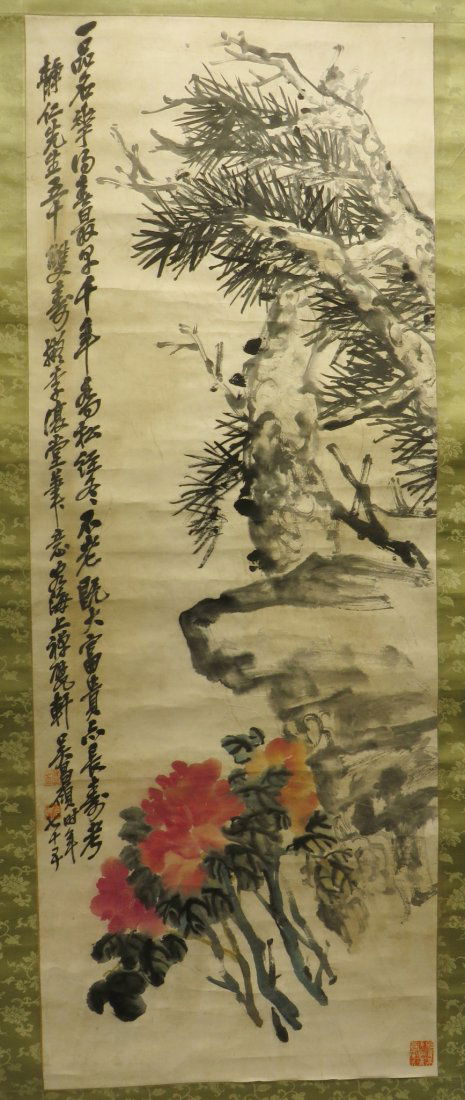 一品名華得春最早千年喬松經冬不老既大富貴亦長壽考
靜仁先生五十雙壽擬李復堂筆意安吉
海上禪甓軒吳昌碩時年七十